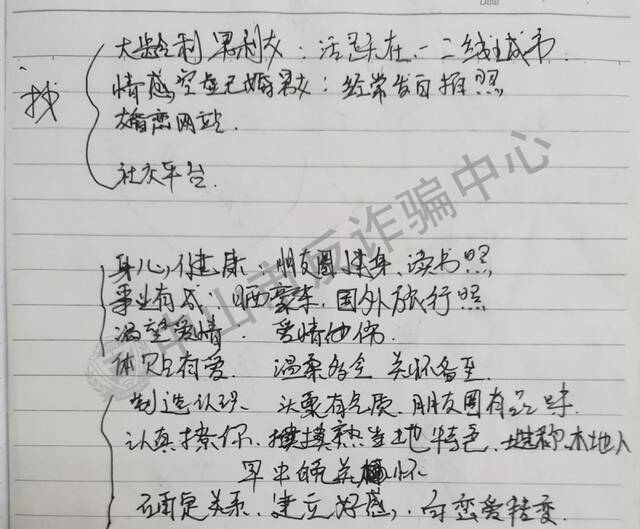 Date
大龄剩男剩女：活跃在一二线城市
找
情感空虚已婚男女：经常发自拍照
婚恋网站
社交平台
身心健康：朋友圈健身、读书照
事业有成 晒豪车，国外旅行照
渴望爱情
体贴有爱 温柔多金 关怀备至
制造认识 头像有气质，朋友圈有品味
认真撩你，摸熟当地特色，地 称本地人
早中晚关怀
石再定关系，建立好感，向恋爱转变
中山市反诈骗中心